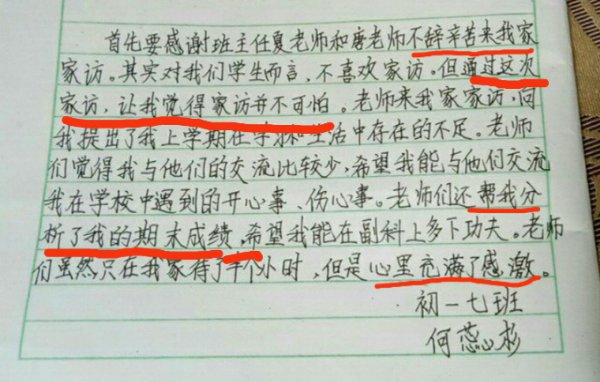 首先要感谢班主任夏老师和唐老师不辞辛苦来我家
家访。其实对我们学生而言，不喜欢家访。但通过这次
家访，让我觉得家访并不可怕。老师来我家家访，向
我提出了我上学期在学习和生活中存在的不足。老师
们觉得我与他们的交流比较少，希望我能与他们交流
我在学校中遇到的开心事、伤心事。老师们还帮我分
析了我的期末成绩，希望我能在副科上多下功夫。老师
们虽然只在我家待了半个小时，但是心里充满了感激。
初一七班
何蕊杉